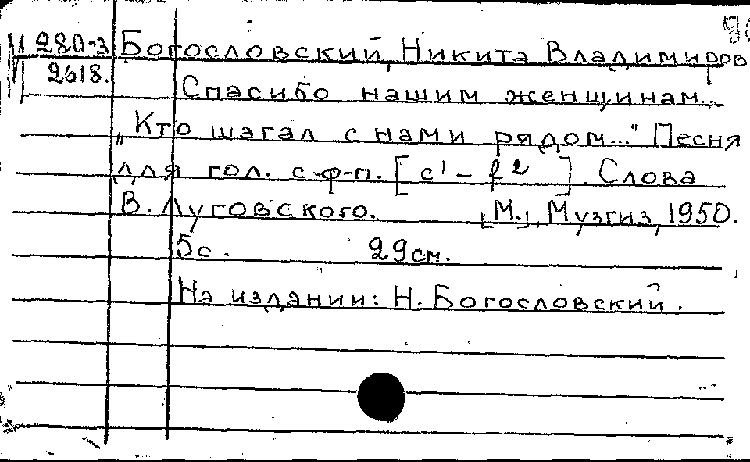 М 280-3 Богословский, Никита Владимиров
2618. Спасибо нашим женщинам..
„Кто шагал с нами рядом..." Песня
для гол. с ф-п. [c¹ – f²]. Слова
В. Луговского. [М.], Музгиз, 1950.
5с. 29см.
На издании: Н. Богословский.